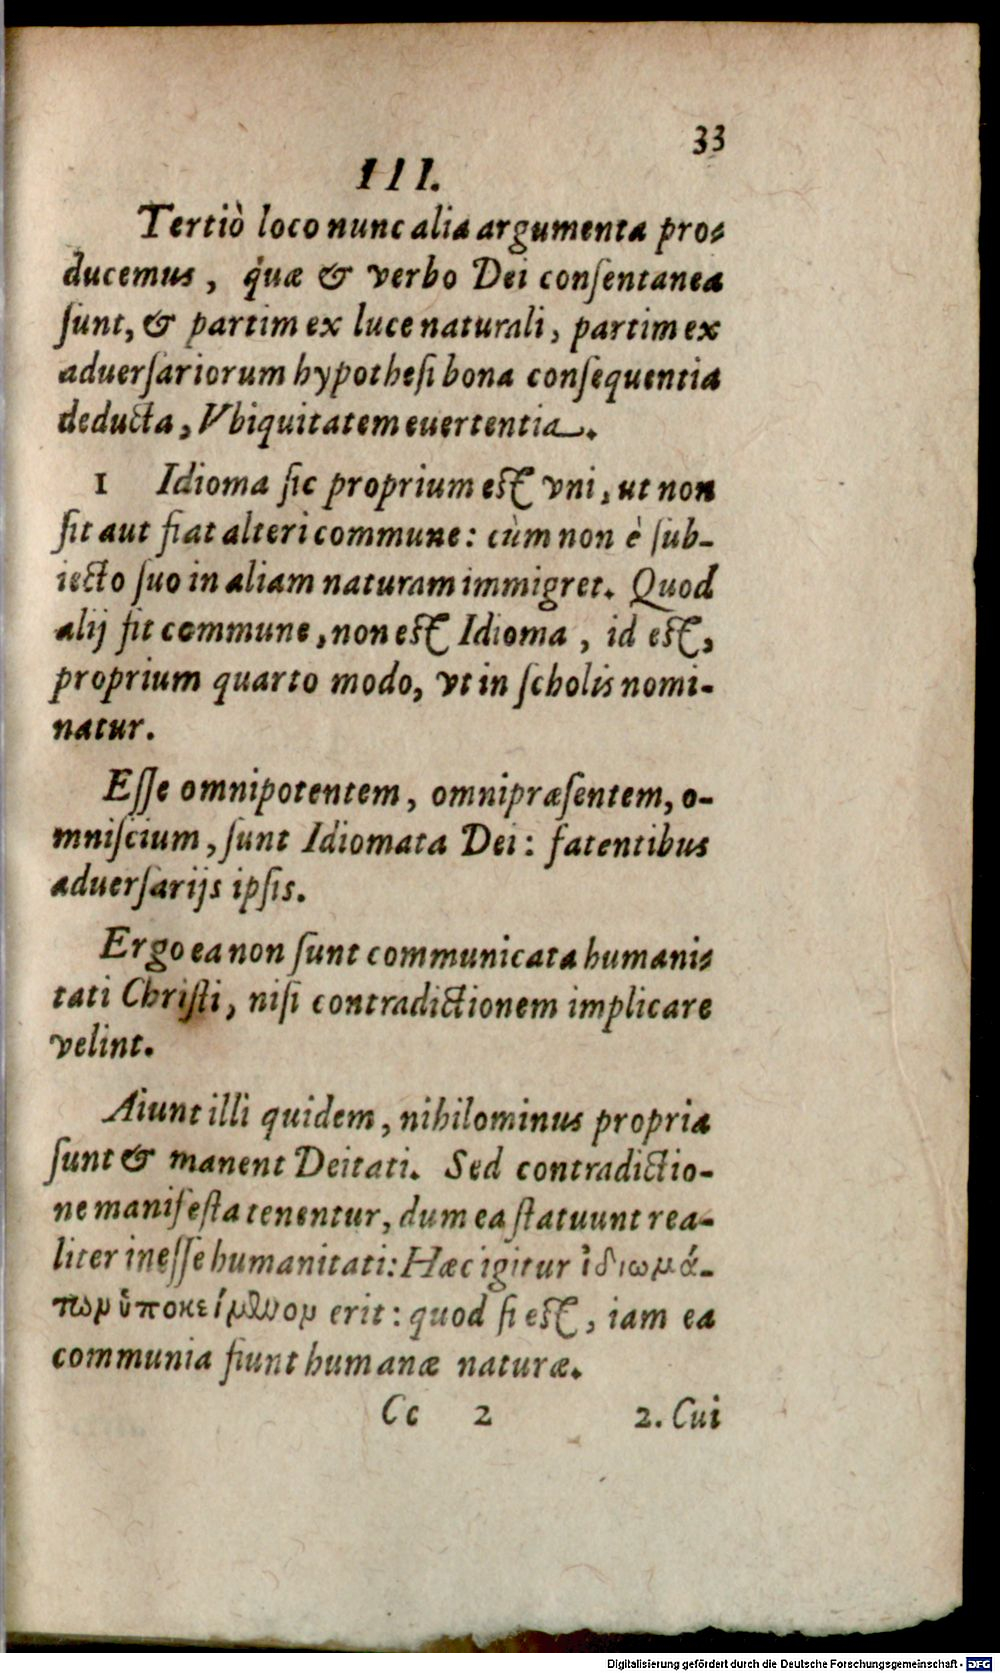 33
III.
Tertiò loco nunc alia argumenta pro-
ducemus, quæ & verbo Dei conſentanea
ſunt, & partim ex luce naturali, partim ex
aduerſariorum hypotheſi bona conſequentia
deducta, Vbiquitatem euertentia.
1 Idioma ſic proprium eſt vni, ut non
ſit aut fiat alteri commune: cùm non è ſub-
iecto ſuo in aliam naturam immigret. Quod
alij fit commune, non eſt Idioma, id eſt,
proprium quarto modo, vt in ſcholis nomi-
natur.
Eſſe omnipotentem, omnipræſentem, o-
mniſcium, ſunt Idiomata Dei: fatentibus
aduerſarijs ipſis.
Ergo ea non ſunt communicata humani-
tati Chriſti, niſi contradictionem implicare
velint.
Aiunt illi quidem, nihilominus propria
ſunt & manent Deitati. Sed contradictio-
ne manifeſta tenentur, dum ea ſtatuunt rea-
liter ineſſe humanitati: Hæc igitur ἰδιωμά-
των ὑποκείμενον erit: quod ſi eſt, iam ea
communia fiunt humanæ naturæ.
Cc 2 2. Cui
Digitalisierung gefördert durch die Deutsche Forschungsgemeinschaft - DFG